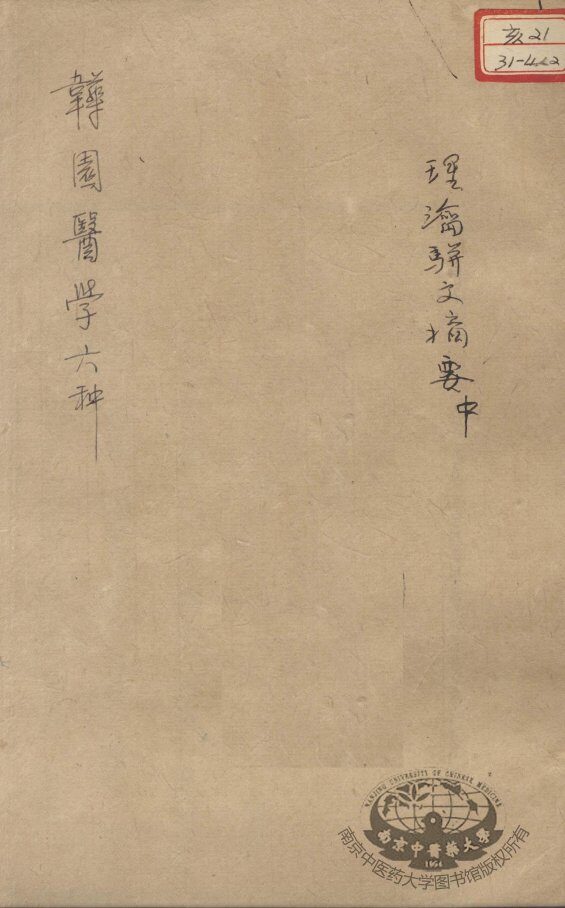 亥21
31-442
理瀹駢文摘要中
韡園醫学六种
NANJING UNIVERSITY OF CHINESE MEDICINE
南京中醫藥大學
南京中医药大学图书馆版权所有